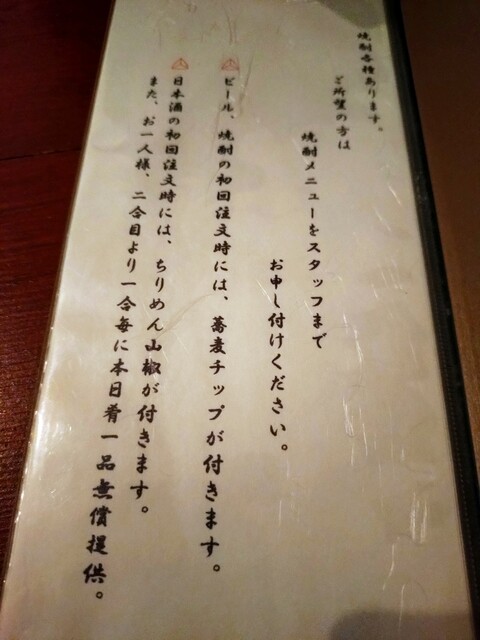 焼酎各種あります。
ご所望の方は
焼酎メニューをスタッフまで
お申し付けください。
ビール、焼酎の初回注文時には、蕎麦チップが付きます。
日本酒の初回注文時には、ちりめん山椒が付きます。
また、お一人様、二合目より一合毎に本日肴一品無償提供。